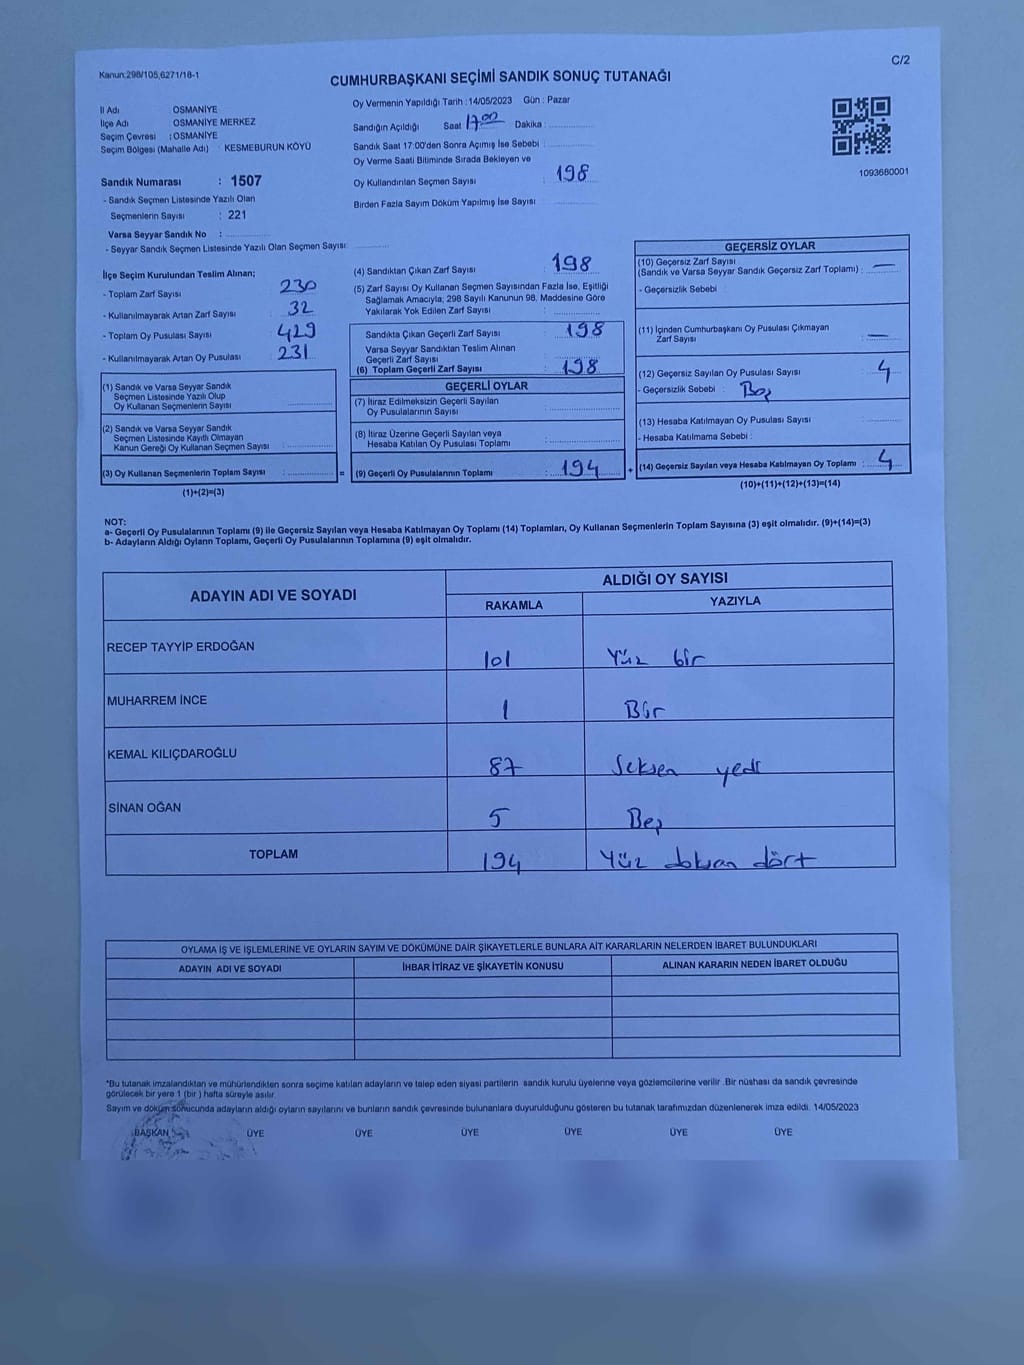 Kanun:298/105,6271/18-1
C/2
CUMHURBAŞKANI SEÇİMİ SANDIK SONUÇ TUTANAĞI
İl Adı OSMANİYE
İlçe Adı OSMANİYE MERKEZ
Seçim Çevresi : OSMANİYE
Seçim Bölgesi (Mahalle Adı) KESMEBURUN KÖYÜ
Sandık Numarası : 1507
- Sandık Seçmen Listesinde Yazılı Olan
Seçmenlerin Sayısı : 221
Varsa Seyyar Sandık No :
- Seyyar Sandık Seçmen Listesinde Yazılı Olan Seçmen Sayısı:
Oy Vermenin Yapıldığı Tarih : 14/05/2023 Gün : Pazar
Sandığın Açıldığı Saat 17:00 Dakika :
Sandık Saat 17:00'den Sonra Açımış İse Sebebi :
Oy Verme Saati Bitiminde Sırada Bekleyen ve
Oy Kullandırılan Seçmen Sayısı : 198
Birden Fazla Sayım Döküm Yapılmış İse Sayısı :
1093680001
İlçe Seçim Kurulundan Teslim Alınan;
- Toplam Zarf Sayısı : 230
- Kullanılmayarak Artan Zarf Sayısı : 32
- Toplam Oy Pusulası Sayısı : 429
- Kullanılmayarak Artan Oy Pusulası : 231
(1) Sandık ve Varsa Seyyar Sandık
Seçmen Listesinde Yazılı Olup
Oy Kullanan Seçmenlerin Sayısı :
(2) Sandık ve Varsa Seyyar Sandık
Seçmen Listesinde Kayıtlı Olmayan
Kanun Gereği Oy Kullanan Seçmen Sayısı :
(3) Oy Kullanan Seçmenlerin Toplam Sayısı :
(1)+(2)=(3)
(4) Sandıktan Çıkan Zarf Sayısı : 198
(5) Zarf Sayısı Oy Kullanan Seçmen Sayısından Fazla İse, Eşitliği
Sağlamak Amacıyla; 298 Sayılı Kanunun 98. Maddesine Göre
Yakılarak Yok Edilen Zarf Sayısı :
Sandıkta Çıkan Geçerli Zarf Sayısı : 198
Varsa Seyyar Sandıktan Teslim Alınan
Geçerli Zarf Sayısı :
(6) Toplam Geçerli Zarf Sayısı : 198
GEÇERLİ OYLAR
(7) İtiraz Edilmeksizin Geçerli Sayılan
Oy Pusulalarının Sayısı :
(8) İtiraz Üzerine Geçerli Sayılan veya
Hesaba Katılan Oy Pusulası Toplamı :
= (9) Geçerli Oy Pusulalarının Toplamı : 194 +
GEÇERSİZ OYLAR
(10) Geçersiz Zarf Sayısı
(Sandık ve Varsa Seyyar Sandık Geçersiz Zarf Toplamı) : —
- Geçersizlik Sebebi :
(11) İçinden Cumhurbaşkanı Oy Pusulası Çıkmayan
Zarf Sayısı : —
(12) Geçersiz Sayılan Oy Pusulası Sayısı : 4
- Geçersizlik Sebebi : Boş
(13) Hesaba Katılmayan Oy Pusulası Sayısı :
- Hesaba Katılmama Sebebi :
(14) Geçersiz Sayılan veya Hesaba Katılmayan Oy Toplamı : 4
(10)+(11)+(12)+(13)=(14)
NOT:
a- Geçerli Oy Pusulalarının Toplamı (9) ile Geçersiz Sayılan veya Hesaba Katılmayan Oy Toplamı (14) Toplamları, Oy Kullanan Seçmenlerin Toplam Sayısına (3) eşit olmalıdır. (9)+(14)=(3)
b- Adayların Aldığı Oyların Toplamı, Geçerli Oy Pusulalarının Toplamına (9) eşit olmalıdır.
ADAYIN ADI VE SOYADI ALDIĞI OY SAYISI
RAKAMLA YAZIYLA
RECEP TAYYİP ERDOĞAN 101 Yüz bir
MUHARREM İNCE 1 Bir
KEMAL KILIÇDAROĞLU 87 Seksen yedi
SİNAN OĞAN 5 Beş
TOPLAM 194 Yüz doksan dört
OYLAMA İŞ VE İŞLEMLERİNE VE OYLARIN SAYIM VE DÖKÜMÜNE DAİR ŞİKAYETLERLE BUNLARA AİT KARARLARIN NELERDEN İBARET BULUNDUKLARI
ADAYIN ADI VE SOYADI İHBAR İTİRAZ VE ŞİKAYETİN KONUSU ALINAN KARARIN NEDEN İBARET OLDUĞU
*Bu tutanak imzalandıktan ve mühürlendikten sonra seçime katılan adayların ve talep eden siyasi partilerin sandık kurulu üyelerine veya gözlemcilerine verilir .Bir nüshası da sandık çevresinde
görülecek bir yere 1 (bir ) hafta süreyle asılır.
Sayım ve döküm sonucunda adayların aldığı oyların sayılarını ve bunların sandık çevresinde bulunanlara duyurulduğunu gösteren bu tutanak tarafımızdan düzenlenerek imza edildi. 14/05/2023
BAŞKAN ÜYE ÜYE ÜYE ÜYE ÜYE ÜYE